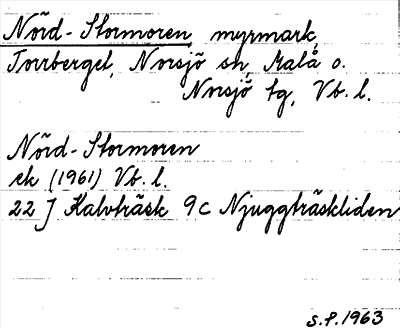 Nörd-Stormoren, myrmark,
Torrberget, Norsjö sn, Malå o.
Norsjö tg, Vb. l.
Nörd-Stormoren
ek (1961) Vb. l.
22 J Kalvträsk 9c Njuggträskliden
S.P. 1963